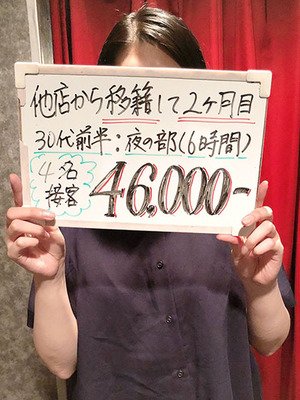 他店から移籍して2ヶ月目
30代前半:夜の部(6時間)
4名
接客
46,000-